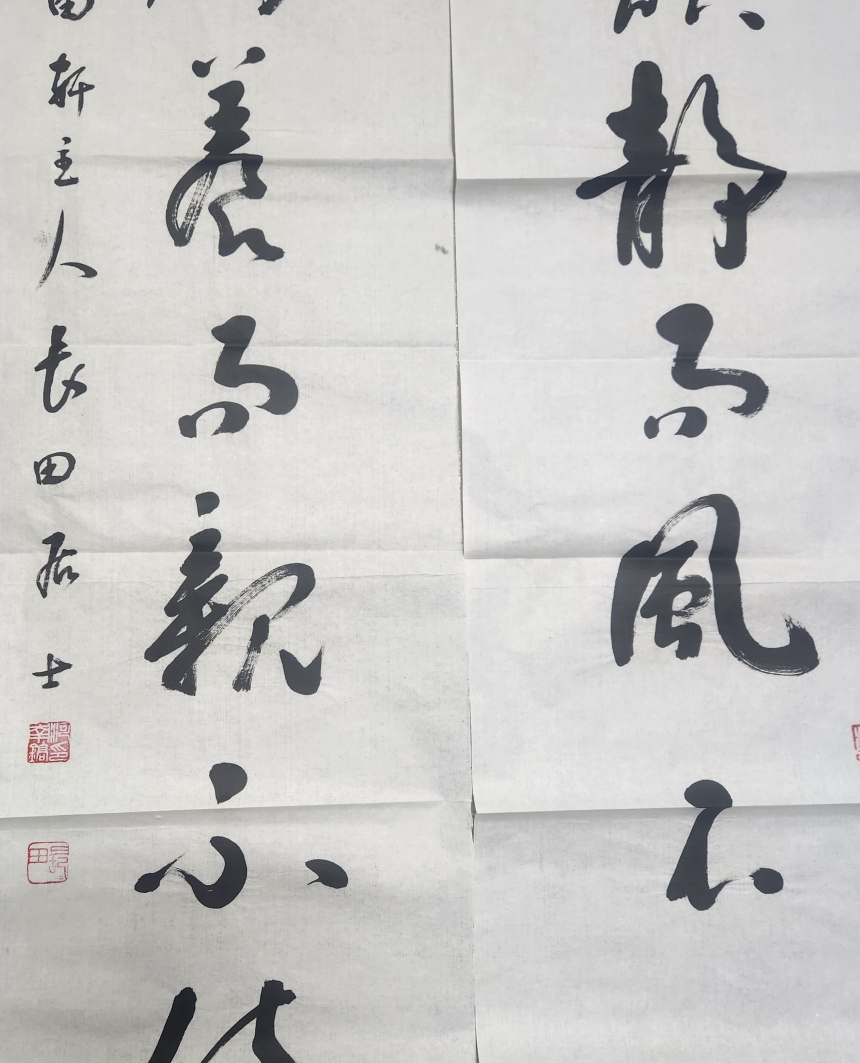 靜而風不
養而親不
軒主人長田居士
長田